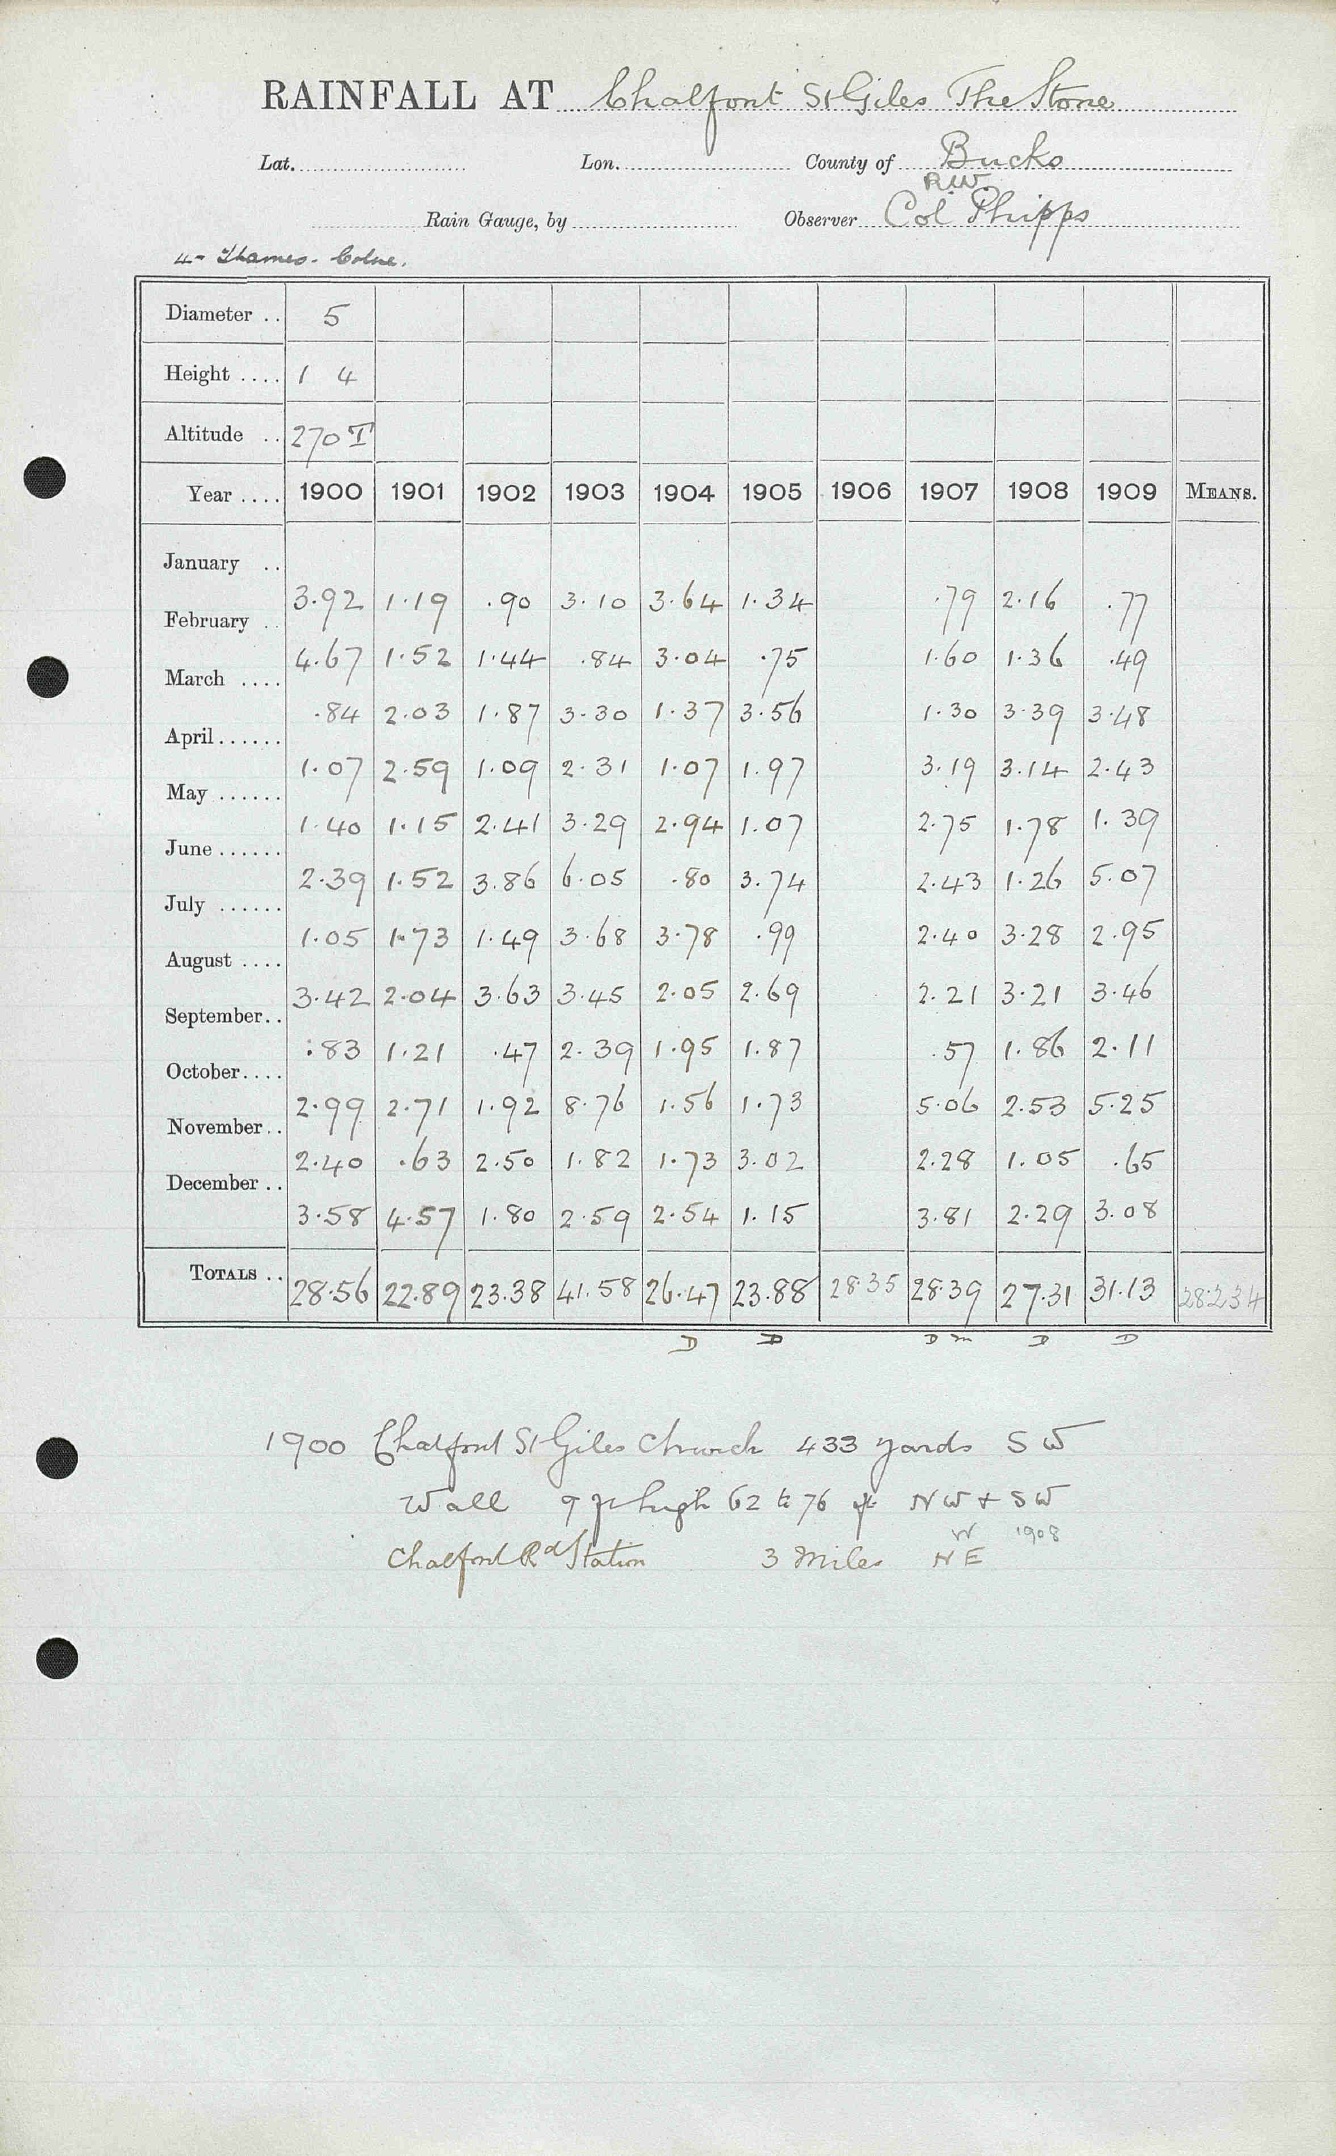 RAINFALL AT Chalfont St Giles The Stone
Lat. Lon. County of Bucks
R.W.
Rain Gauge, by Observer Col Phipps
4- Thames - Colne.
Diameter .. 5
Height .... 1 4
Altitude .. 270 T
Year .... 1900 1901 1902 1903 1904 1905 1906 1907 1908 1909 MEANS.
January .. 3.92 1.19 .90 3.10 3.64 1.34 .79 2.16 .77
February .. 4.67 1.52 1.44 .84 3.04 .75 1.60 1.36 .49
March .... .84 2.03 1.87 3.30 1.37 3.56 1.30 3.39 3.48
April...... 1.07 2.59 1.09 2.31 1.07 1.97 3.19 3.14 2.43
May ...... 1.40 1.15 2.41 3.29 2.94 1.07 2.75 1.78 1.39
June ...... 2.39 1.52 3.86 6.05 .80 3.74 2.43 1.26 5.07
July ...... 1.05 1.73 1.49 3.68 3.78 .99 2.40 3.28 2.95
August .... 3.42 2.04 3.63 3.45 2.05 2.69 2.21 3.21 3.46
September.. .83 1.21 .47 2.39 1.95 1.87 .57 1.86 2.11
October.... 2.99 2.71 1.92 8.76 1.56 1.73 5.06 2.53 5.25
November.. 2.40 .63 2.50 1.82 1.73 3.02 2.28 1.05 .65
December .. 3.58 4.57 1.80 2.59 2.54 1.15 3.81 2.29 3.08
TOTALS .. 28.56 22.89 23.38 41.58 26.47 23.88 28.35 28.39 27.31 31.13 28.234
D D D m D D
1900 Chalfont St Giles Church 433 yards S W
Wall 9 ft high 62 to 76 ft N W + S W
W 1908
Chalfont Rd Station 3 Miles N E